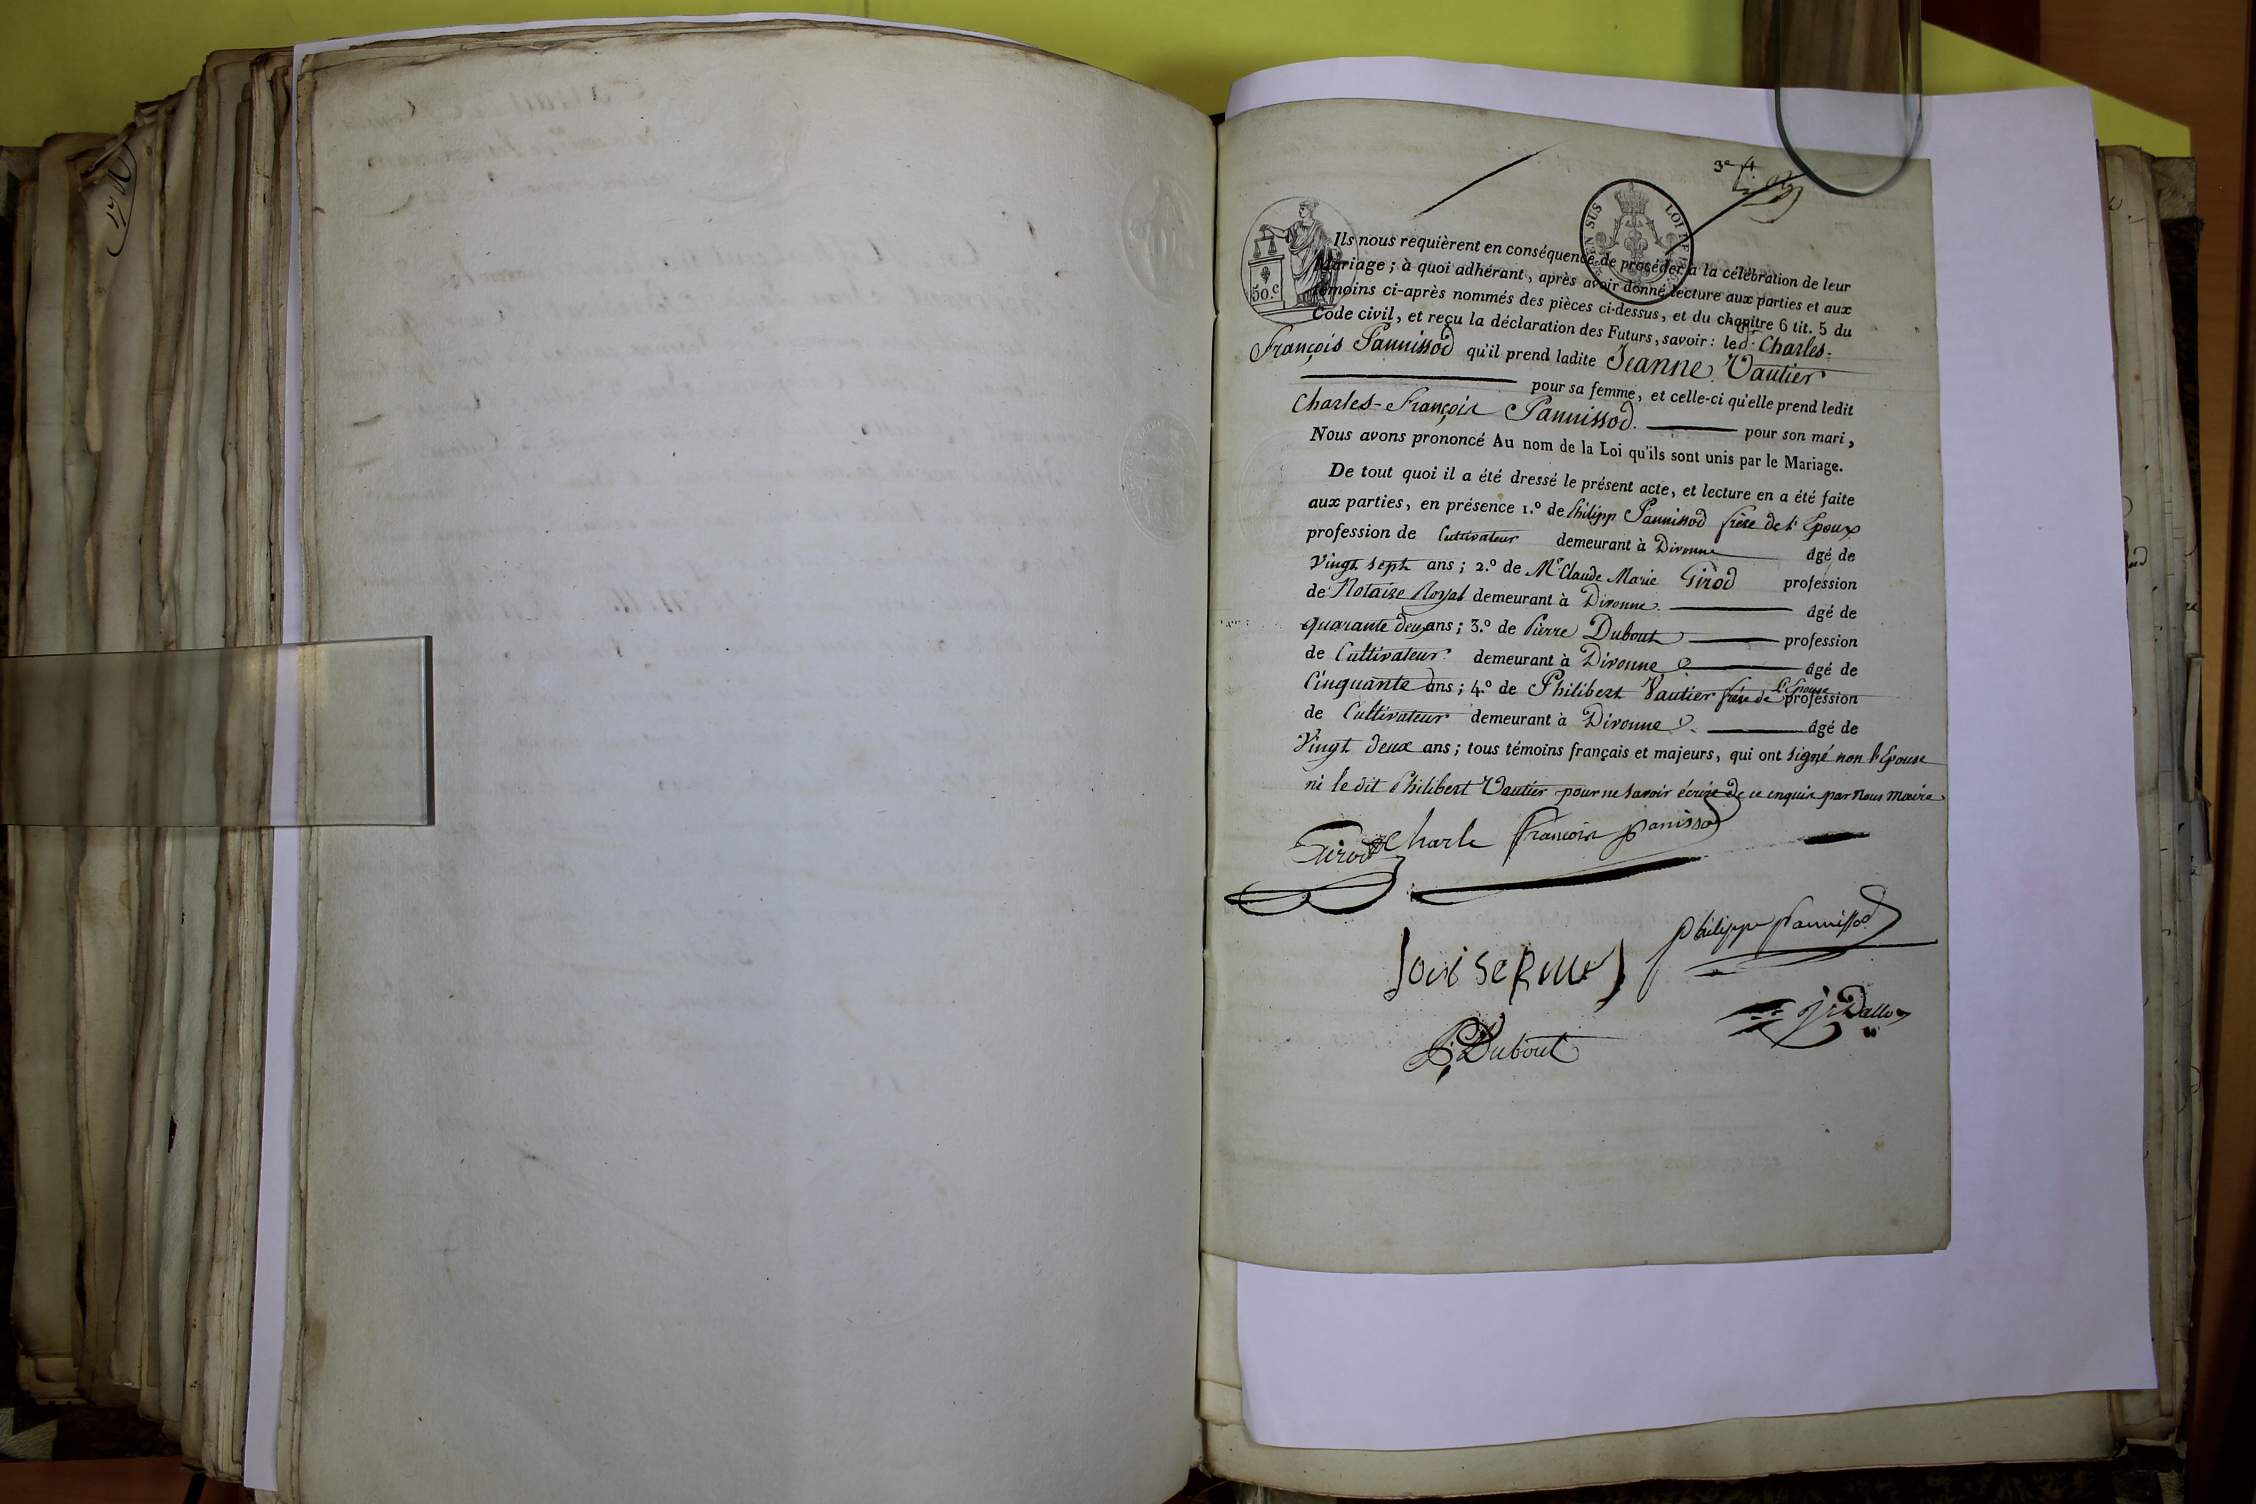 3e f
50.c
EN SUS
LOI DE
Ils nous requièrent en conséquence de procéder à la célébration de leur
Mariage ; à quoi adhérant, après avoir donné lecture aux parties et aux
témoins ci-après nommés des pièces ci-dessus, et du chapitre 6 tit. 5 du
Code civil, et reçu la déclaration des Futurs, savoir : led.t Charles-
François Pannissod qu'il prend ladite Jeanne Vautier
pour sa femme, et celle-ci qu'elle prend ledit
Charles-François Pannissod. pour son mari,
Nous avons prononcé Au nom de la Loi qu'ils sont unis par le Mariage.
De tout quoi il a été dressé le présent acte, et lecture en a été faite
aux parties, en présence 1.º de Philipp Pannissod frère de l'Epoux
profession de Cultivateur demeurant à Divonne âgé de
Vingt sept ans ; 2.º de Me Claude Marie Girod profession
de Notaire Royal demeurant à Divonne. âgé de
quarante deux ans ; 3.º de Pierre Dubout profession
de Cultivateur demeurant à Divonne âgé de
Cinquante ans ; 4.º de Philibert Vautier frère de l'Epouse profession
de Cultivateur demeurant à Divonne. âgé de
Vingt deux ans ; tous témoins français et majeurs, qui ont signé non l'Epouse
ni le dit Philibert Vautier pour ne savoir écrire de ce enquis par Nous Maire
Girod Charle françois panissod
philippe pannissod
P. Dubout